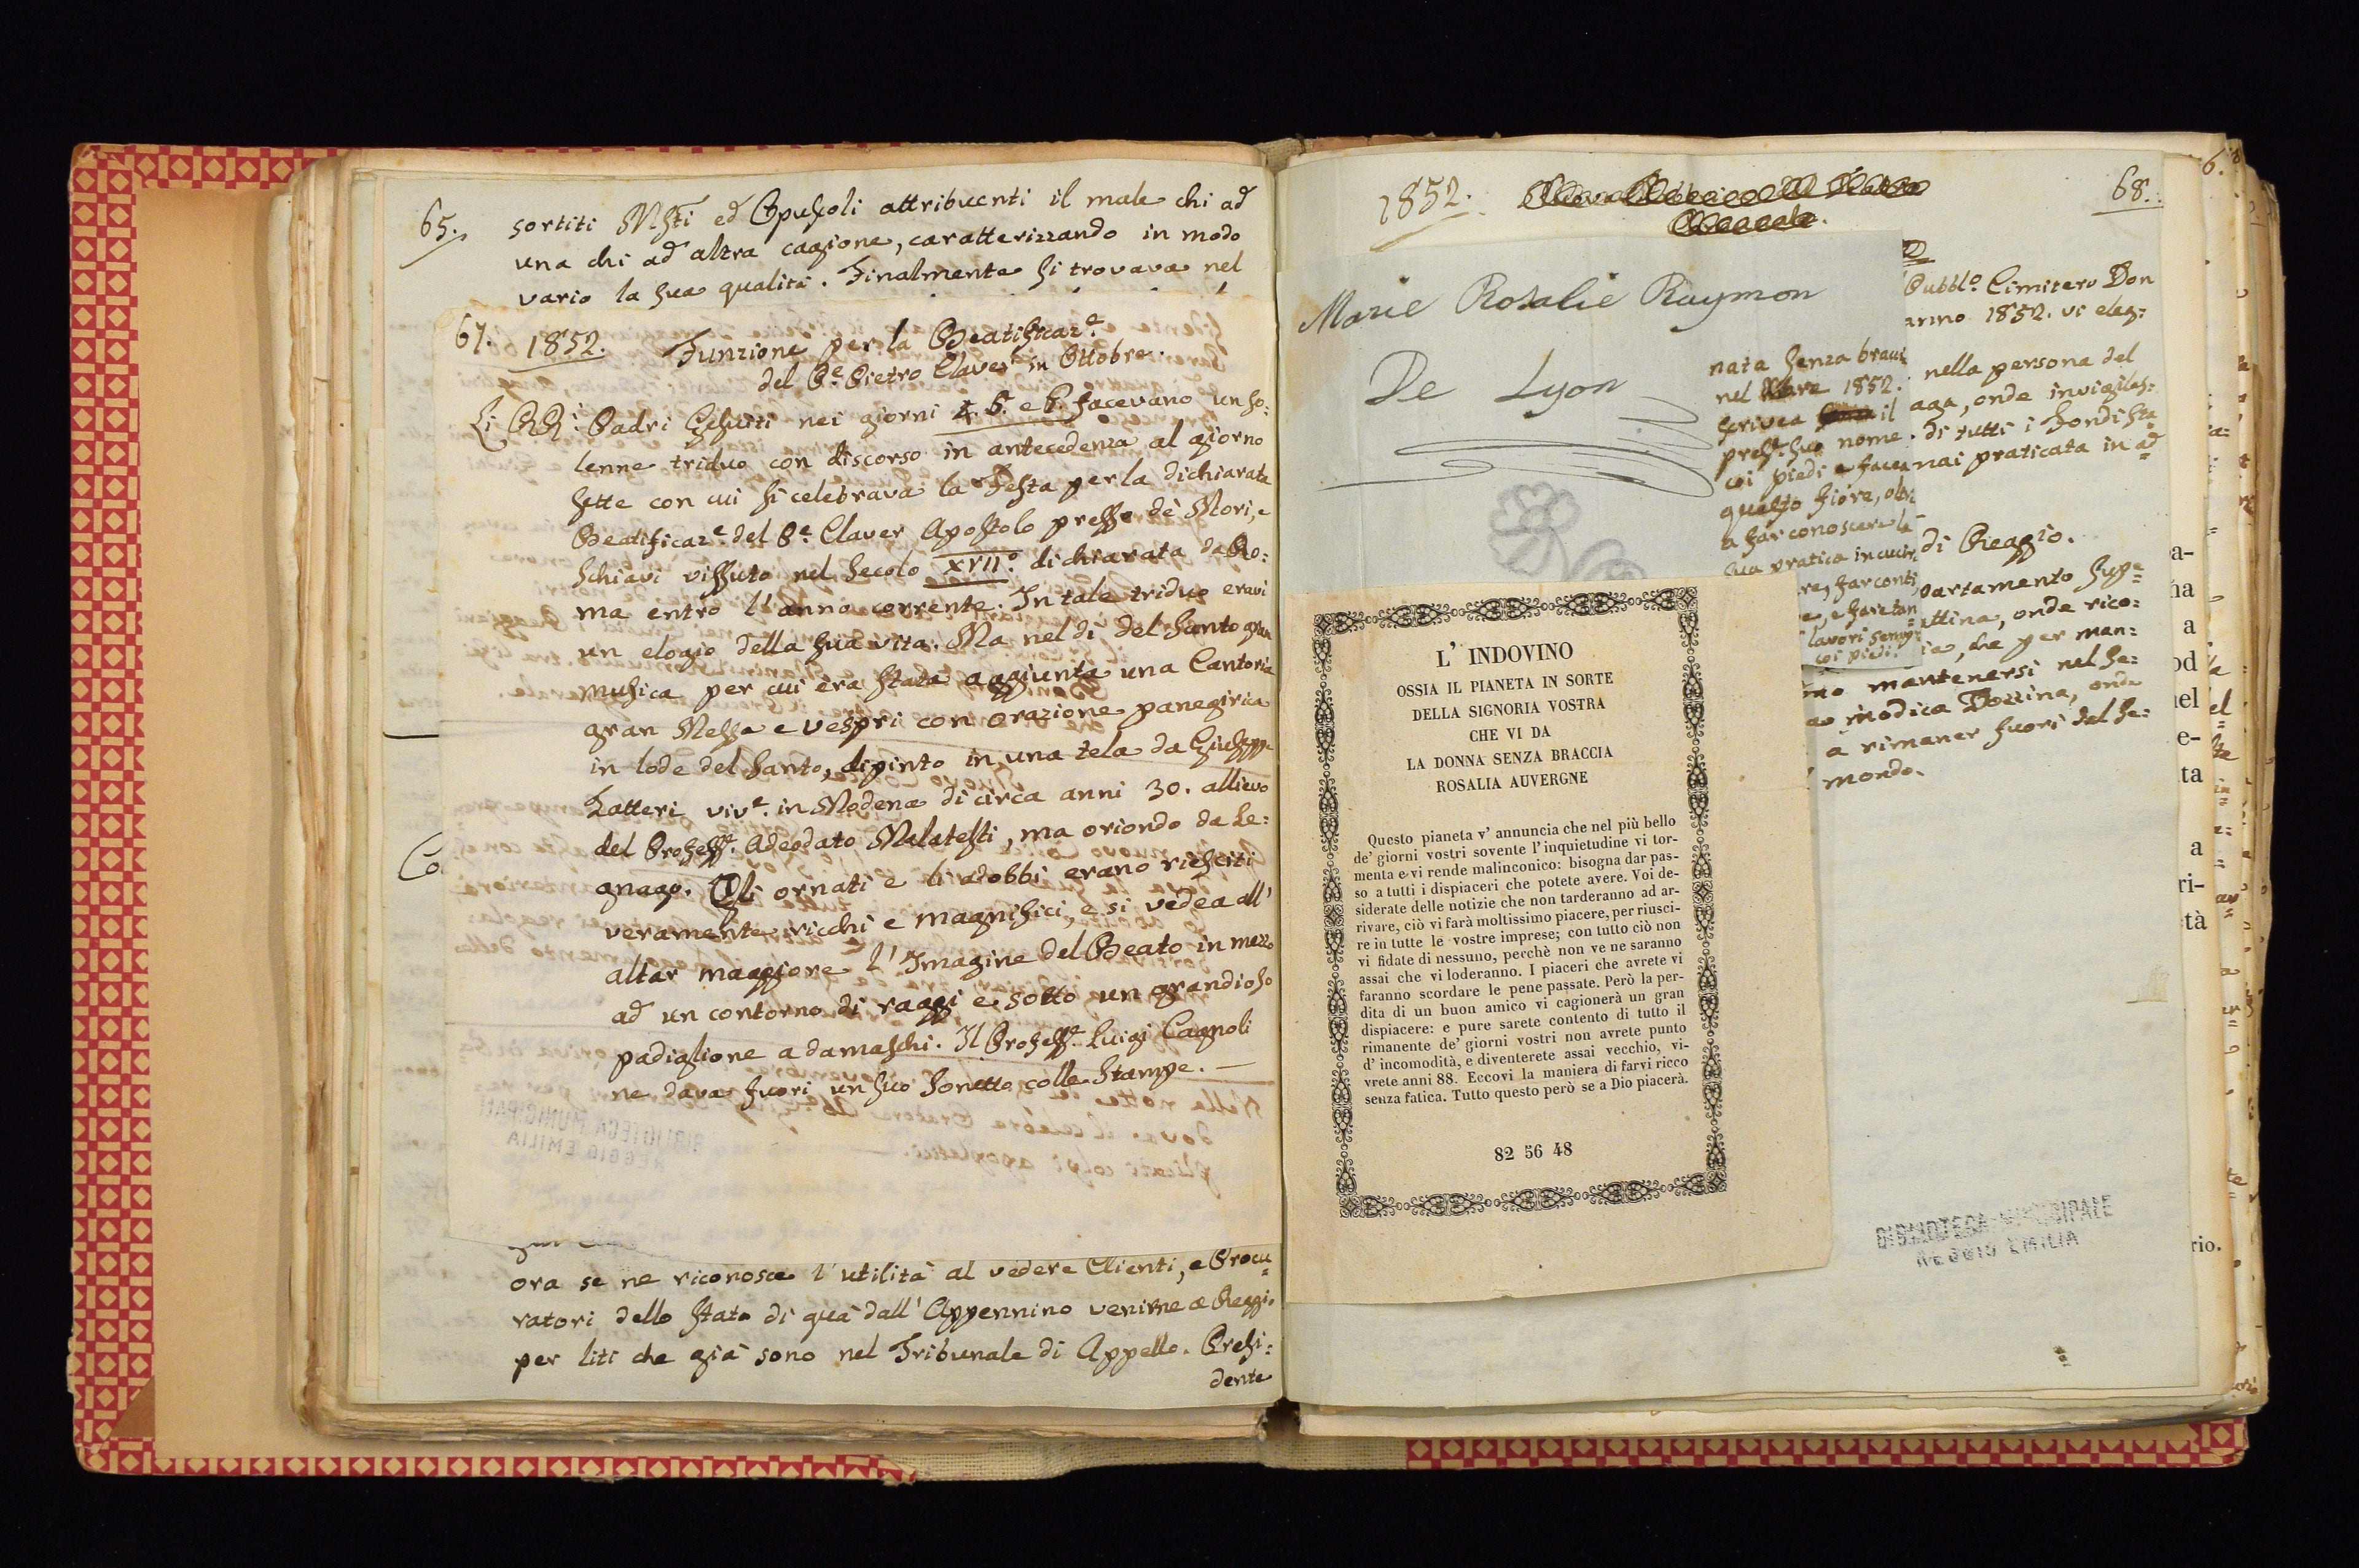 65.
sortiti Mssti ed Opuscoli attribuenti il male chi ad
una chi ad altra cagione, caratterizzando in modo
vario la sua qualità. Finalmente si trovava nel
67. 1852. Funzione per la Beatificaz.e
del B.e Pietro Claver in Ottobre.
Li RR.i Padri Gesuiti nei giorni 4. 5. e 6. facevano un so:
lenne triduo con discorso in antecedenza al giorno
sette con cui si celebrava la Festa per la dichiarata
Beatificaz.e del B.e Claver Apostolo presso de' Mori, e
schiavi vissuto nel secolo XVII.o dichiarata da Ro:
ma entro l'anno corrente. In tale triduo eravi
un elogio della sua vita. Ma nel dì del Santo gran
musica per cui era stata aggiunta una Cantoria
gran Messa e vespri con orazione panegirica
in lode del Santo, dipinto in una tela da Giuseppe
Zatteri viv.e in Modena di circa anni 30. allievo
del Profess.e Adeodato Malatesti, ma oriondo da Le:
gnago. Gli ornati e li adobbi erano riesciti
veramente ricchi e magnifici, e si vedea all'
altar maggiore l'Imagine del Beato in mezzo
ad un contorno di raggi e sotto un grandioso
padiglione a damaschi. Il Profess.e Luigi Cagnoli
ne dava fuori un suo Sonetto colle Stampe. —
Co
ora se ne riconosce l'utilità al vedere Clienti, e Procu=
ratori dello Stato di quà dall'Appennino venirne a Reggio
per liti che già sono nel Tribunale di Appello. Presi:
dente
1852.
68.
Marie Rosalie Raymon
De Lyon
nata senza bracci
nel Mare 1852.
scrivea il
pres.te suo nome
coi piedi e facea
questo fiore, olt
a far conoscere la
sua pratica in cuci
re, far conti,
e, e far tan
lavori semp
coi piedi.
Pubbl.o Cimitero Don
anno 1852. vi eleg:
nella persona del
aga, onde invigilas:
di tutti i fondi sta
mai praticata in ad
di Reggio.
partamento supe=
ttina, onde rico:
ia, che per man:
mo mantenersi nel se:
a modica Dozzina, onde
a rimaner fuori del se:
mondo.
L' INDOVINO
OSSIA IL PIANETA IN SORTE
DELLA SIGNORIA VOSTRA
CHE VI DA
LA DONNA SENZA BRACCIA
ROSALIA AUVERGNE
Questo pianeta v' annuncia che nel più bello
de' giorni vostri sovente l' inquietudine vi tor-
menta e vi rende malinconico: bisogna dar pas-
so a tutti i dispiaceri che potete avere. Voi de-
siderate delle notizie che non tarderanno ad ar-
rivare, ciò vi farà moltissimo piacere, per riusci-
re in tutte le vostre imprese; con tutto ciò non
vi fidate di nessuno, perchè non ve ne saranno
assai che vi loderanno. I piaceri che avrete vi
faranno scordare le pene passate. Però la per-
dita di un buon amico vi cagionerà un gran
dispiacere: e pure sarete contento di tutto il
rimanente de' giorni vostri non avrete punto
d' incomodità, e diventerete assai vecchio, vi-
vrete anni 88. Eccovi la maniera di farvi ricco
senza fatica. Tutto questo però se a Dio piacerà.
82 56 48
BIBLIOTECA MUNICIPALE
REGGIO EMILIA